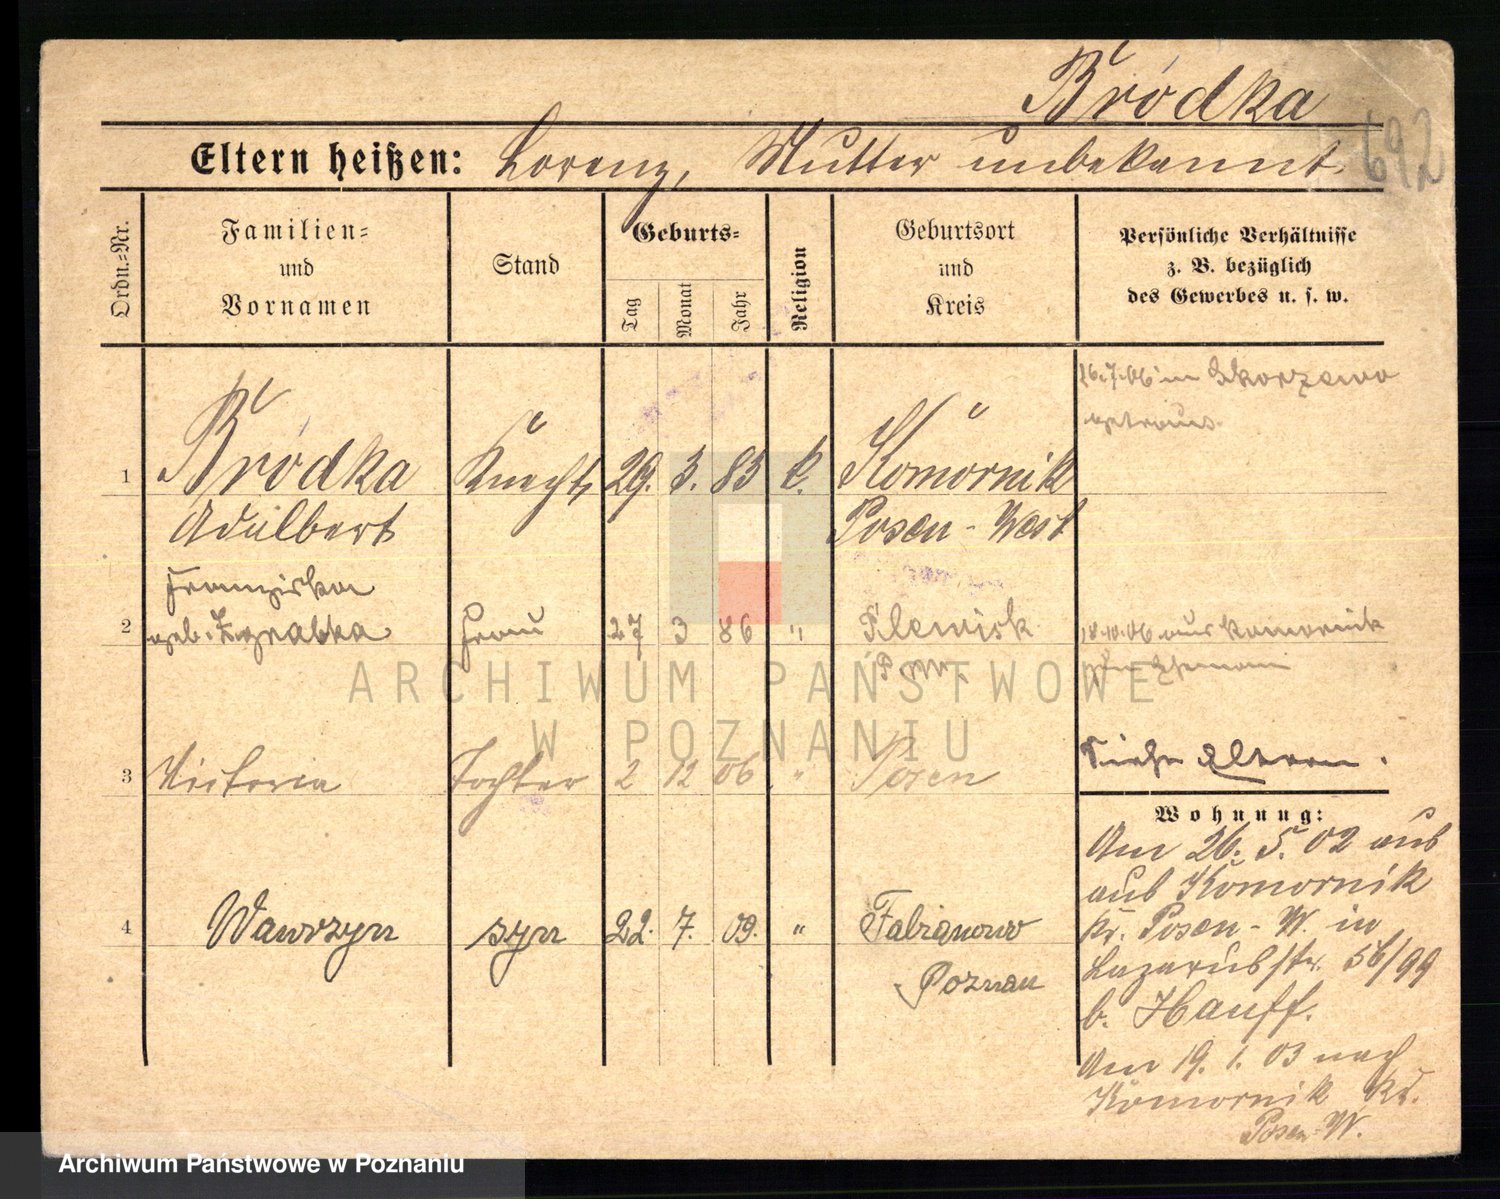 Bródka
692
Eltern heißen: Lorenz, Mutter unbekannt.
Ordn.-Nr.
Familien-
und
Vornamen
Stand
Geburts-
Tag
Monat
Jahr
Religion
Geburtsort
und
Kreis
Persönliche Verhältnisse
z. B. bezüglich
des Gewerbes u. s. w.
26.7.06 in Skorzewo
getraut.
1 Bródka Knecht 29. 3. 83 k. Komornik
Adalbert Posen-West
Franziska
2 geb. Frau 27 3 86 " Plewisk 18.10.06 aus Komornik
P. W.
3 Victoria Tochter 2 12 06 " Posen
Siehe Eltern.
Wohnung:
Am 26. 5. 02 aus
aus Komornik
Kr. Posen-W. in
Lazarusstr. 56/99
b. Hauff.
4 Wawrzyn syn 22. 7. 09. " Fabianowo
Poznan
Am 19. 1. 03 nach
Komornik Kr.
Posen-W.
ARCHIWUM PAŃSTWOWE
W POZNANIU
Archiwum Państwowe w Poznaniu